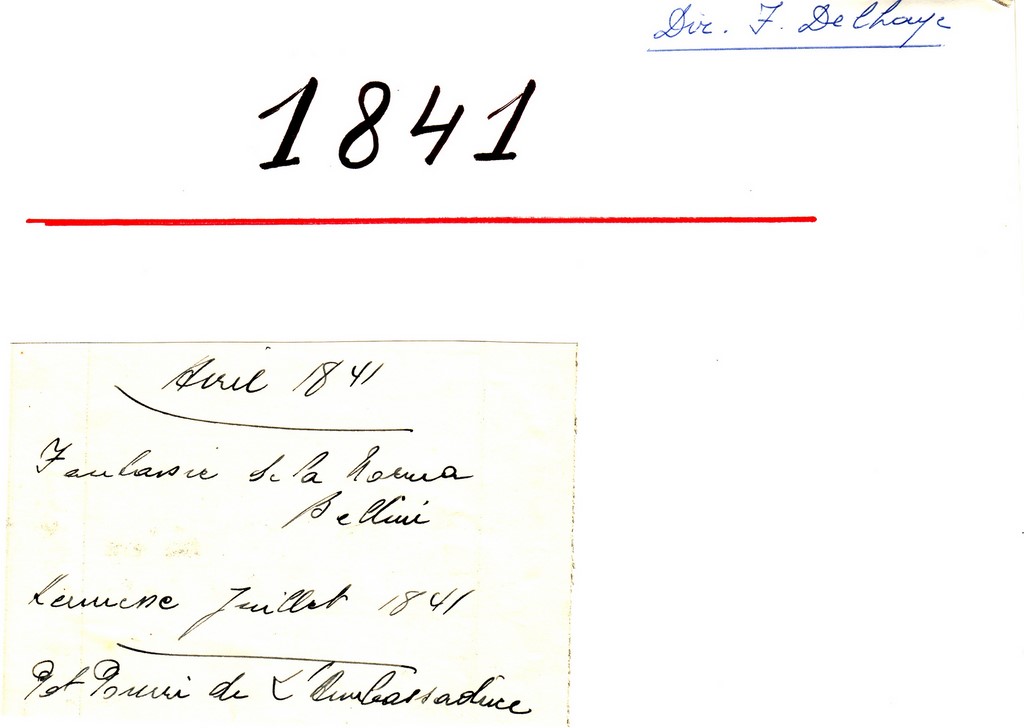 Dir. F. Delhaye
1841
Avril 1841
Fantaisie de la Norma
Bellini
Kermesse Juillet 1841
Pot Pourri de L'Ambassadrice